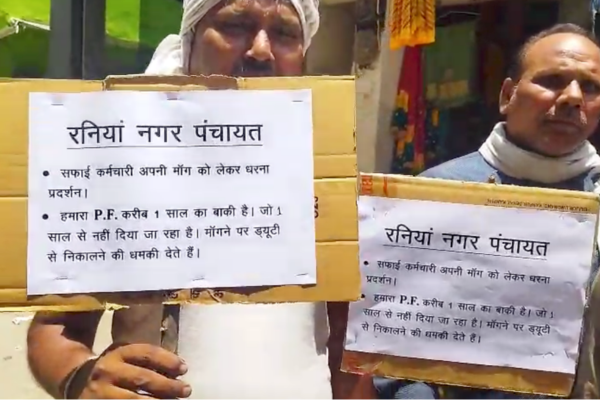 रनियां नगर पंचायत
• सफाई कर्मचारी अपनी मॉग को लेकर धरना
प्रदर्शन।
• हमारा P.F. करीब 1 साल का बाकी है। जो 1
साल से नहीं दिया जा रहा है। मॉगने पर ड्यूटी
से निकालने की धमकी देते हैं।
रनियां नगर पंचायत
• सफाई कर्मचारी अपनी मॉग को लेकर धरना
प्रदर्शन।
• हमारा P.F. करीब 1 साल का बाकी है। जो 1
साल से नहीं दिया जा रहा है। मॉगने पर ड्यूटी
से निकालने की धमकी देते हैं।